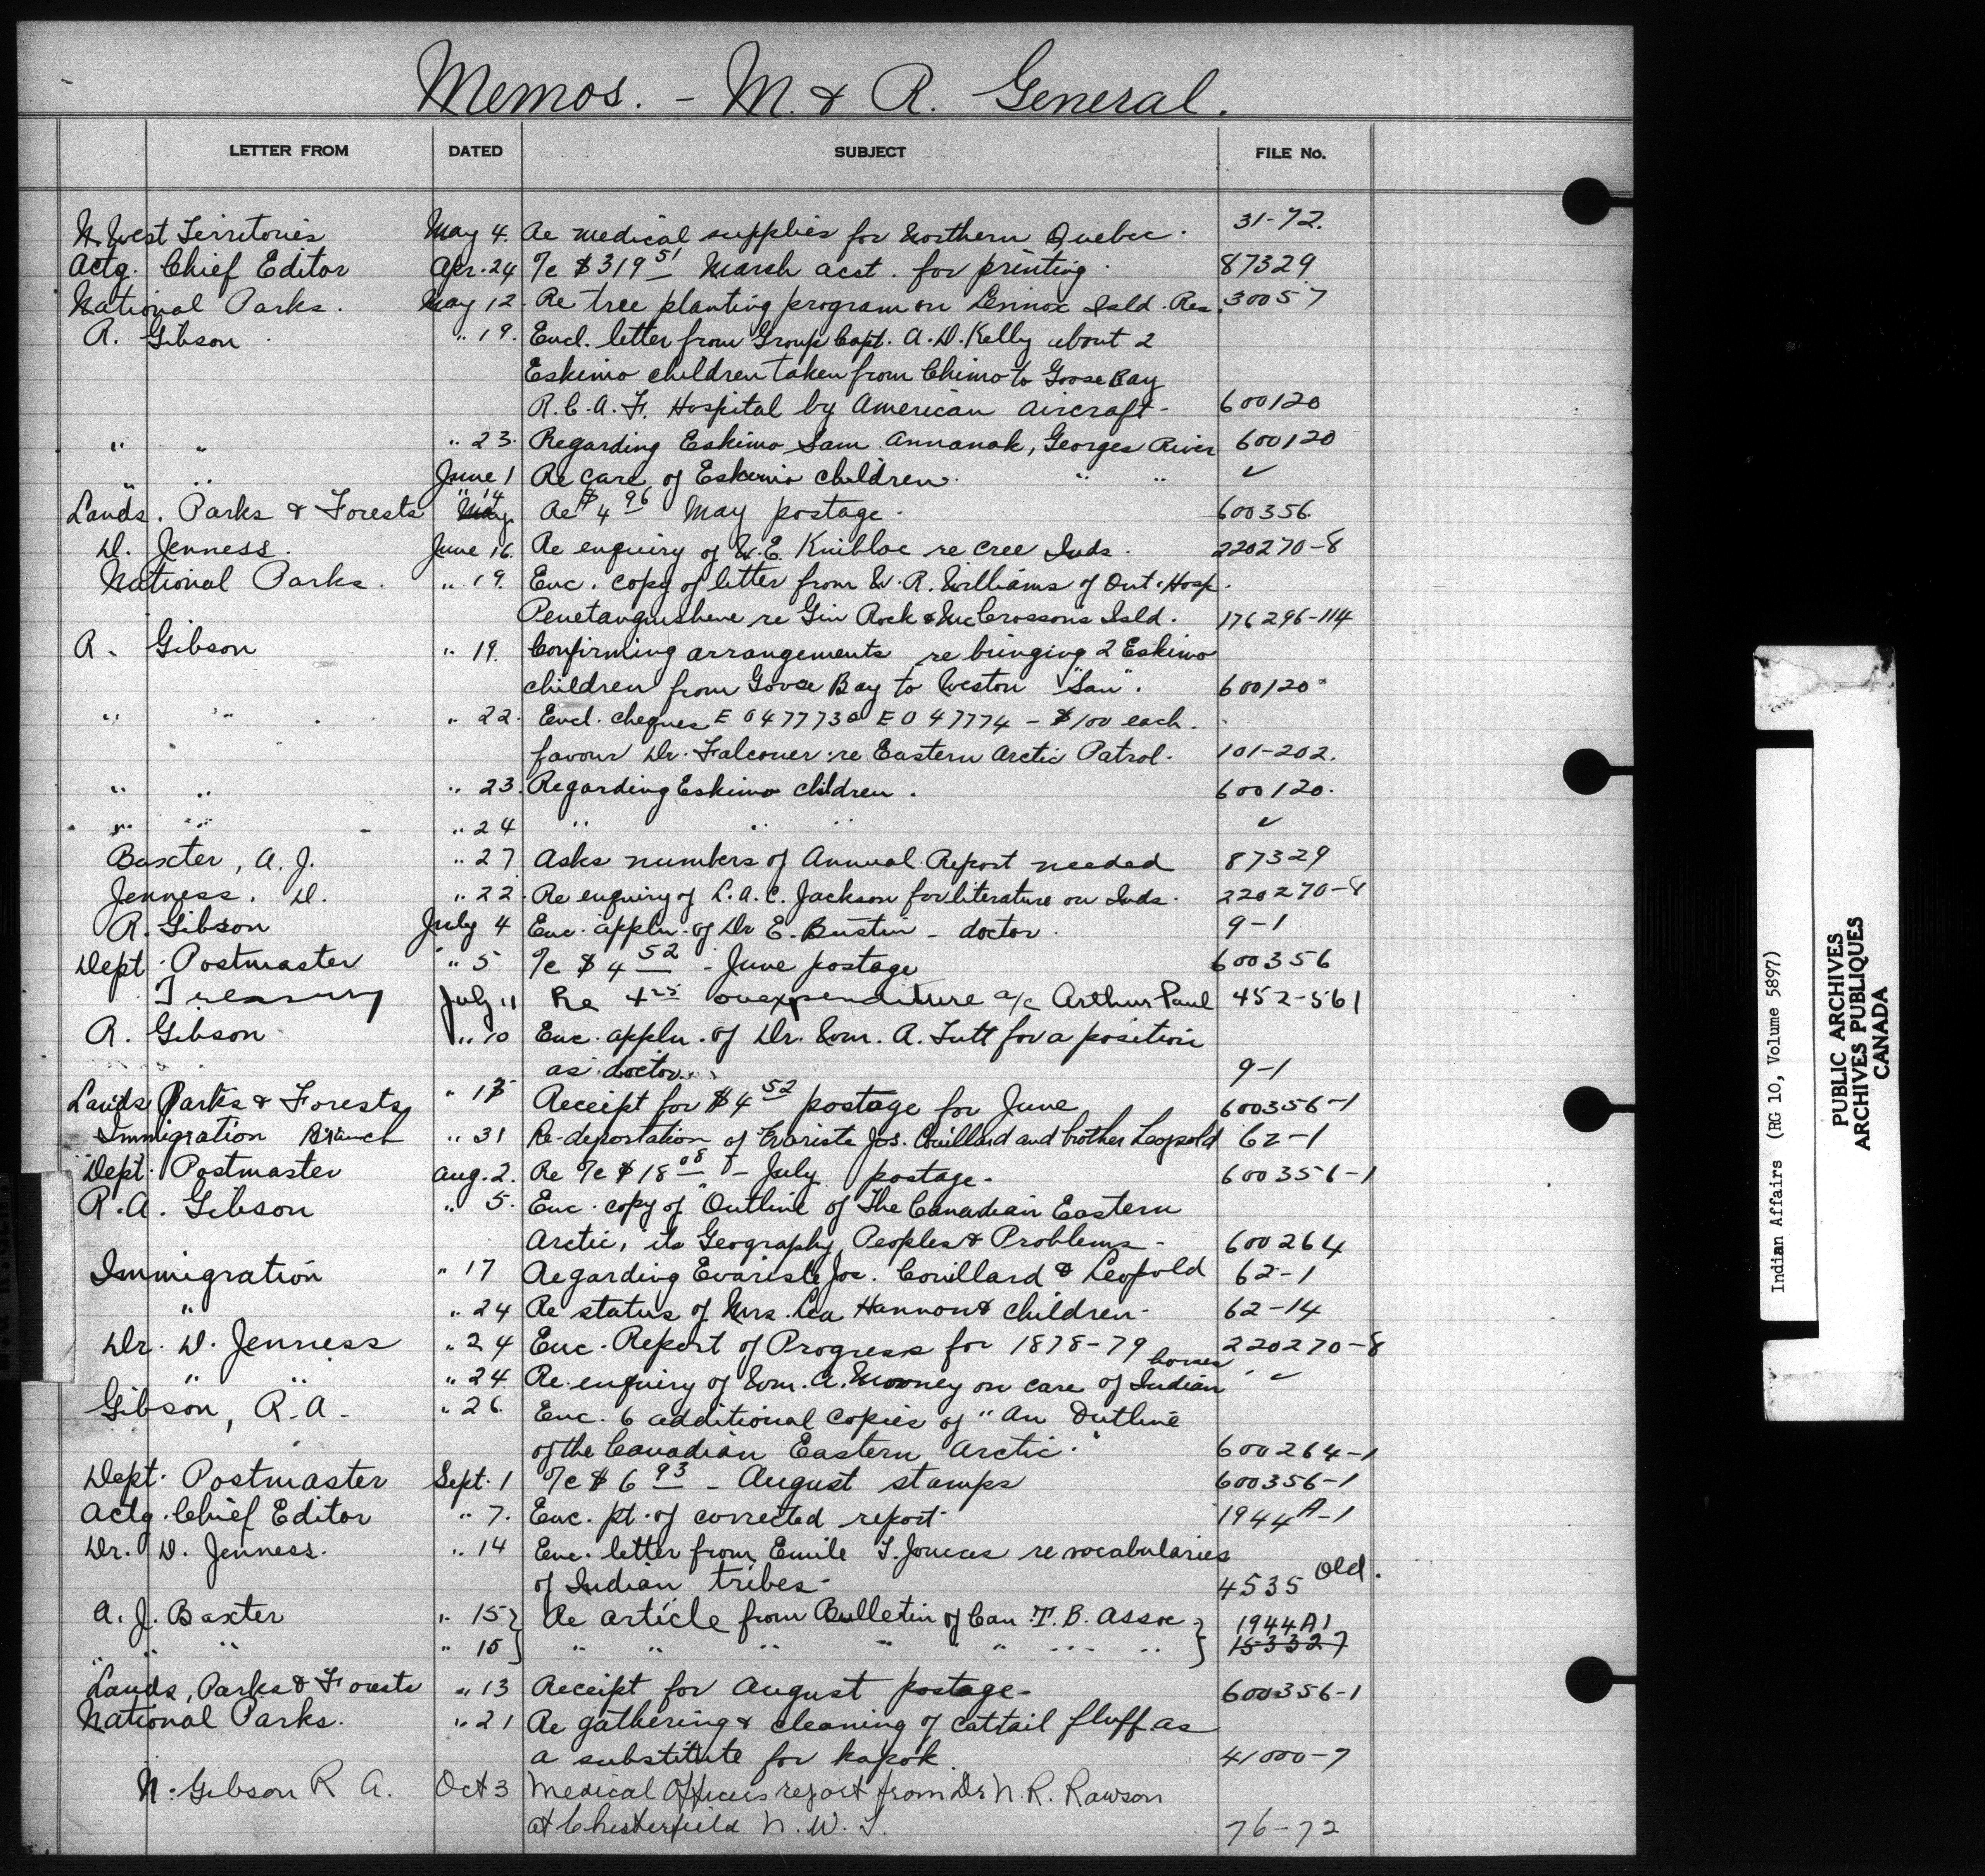 Memos. - M. & R. General.
LETTER FROM DATED SUBJECT FILE No.
N. West Territories May 4. Re medical supplies for Northern Quebec. 31-72.
Actg. Chief Editor Apr. 24 %c $319 51 March acct. for printing. 87329
National Parks. May 12. Re tree planting program on Lennox Isld. Res. 30057
R. Gibson " 19. Encl. letter from Group Capt. A. D. Kelly about 2
Eskimo children taken from Chimo to Goose Bay
R.C.A.F. Hospital by American aircraft - 600120
" " " 23. Regarding Eskimo Sam Annanak, Georges River 600120
" " June 1 Re care of Eskimo children. " " ✓
Lands. Parks & Forests " 14 May Re $4 96 May postage. 600356
D. Jenness. June 16. Re enquiry of W. E. Knibloe re Cree Inds. 220270-8
National Parks. " 19. Enc. copy of letter from W. R. Williams of Ont. Hosp.
Penetanguishene re Gin Rock & McCrossons Isld. 176296-114
R. Gibson " 19. Confirming arrangements re bringing 2 Eskimo
children from Goose Bay to Weston "San". 600120
" " " 22. Encl. cheques E047773 & E047774 - $100 each.
favour Dr. Falconer re Eastern Arctic Patrol. 101-202.
" " " 23. Regarding Eskimo children. 600120.
" " " 24 " " " ✓
Baxter, A. J. " 27 Asks numbers of Annual Report needed 87329
Jenness, D. " 22. Re enquiry of L.A.C. Jackson for literature on Inds. 220270-8
R. Gibson July 4 Enc. appln. of Dr E. Bustin - doctor. 9-1
Dept. Postmaster " 5 %c $4 52 - June postage 600356
Treasury July 11 Re overexpenditure a/c Arthur Paul 452-561
R. Gibson " 10 Enc. appln. of Dr. Wm. A. Tutt for a position
as doctor. 9-1
Lands Parks & Forests " Receipt for $4 52 postage for June 600356-1
Immigration Branch " 31 Re-deportation of Evariste Jos. Couillard and brother Leopold 62-1
Dept. Postmaster Aug. 2. Re %c $18 08 - July postage. 600356-1
R.A. Gibson " 5. Enc. copy of "Outline of The Canadian Eastern
Arctic, its Geography, Peoples & Problems - 600264
Immigration " 17 Regarding Evariste Jos. Couillard & Leopold 62-1
" " 24 Re status of Mrs. Lea Hannon & children. 62-14
Dr. D. Jenness " 24 Enc. Report of Progress for 1878-79 220270-8
" " " 24 Re enquiry of Wm. A. Mooney on care of Indian horses " ✓
Gibson, R.A. " 26. Enc. 6 additional copies of "An Outline
of the Canadian Eastern Arctic." 600264-1
Dept. Postmaster Sept. 1 %c $6 93 - August stamps 600356-1
Actg. Chief Editor " 7. Enc. pt. of corrected report. 1944A-1
Dr. D. Jenness. " 14 Enc. letter from Emile re vocabularies
of Indian tribes. 4535 Old.
A. J. Baxter " 15 } Re article from Bulletin of Can. T.B. Assoc } 1944A1
" " " " 15 } " " " " " " " } 153327
Lands, Parks & Forests " 13 Receipt for August postage - 600356-1
National Parks. " 21 Re gathering & cleaning of cattail fluff as
a substitute for kapok. 41000-7
N. Gibson R A. Oct 3 Medical Officers report from Dr N. R. Rawson
at Chesterfield N. W. T. 76-72
Indian Affairs (RG 10, Volume 5897)
PUBLIC ARCHIVES
ARCHIVES PUBLIQUES
CANADA